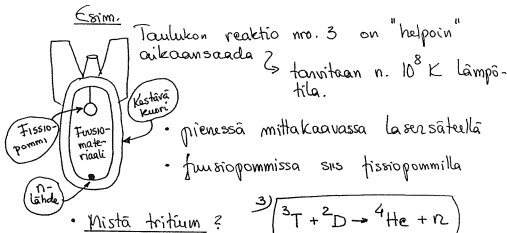 Esim.
Taulukon reaktio nro. 3 on "helpoin"
aikaansaada
tarvitaan n. 10⁸ K lämpö-
tila.
Kestävä
kuori
Fissio-
pommi
Fuusio-
mate-
riaali
• pienessä mittakaavassa lasersäteellä
• fuusiopommissa siis fissiopommilla
n-
lähde
• Mistä tritium ?
3) ³T + ²D → ⁴He + n